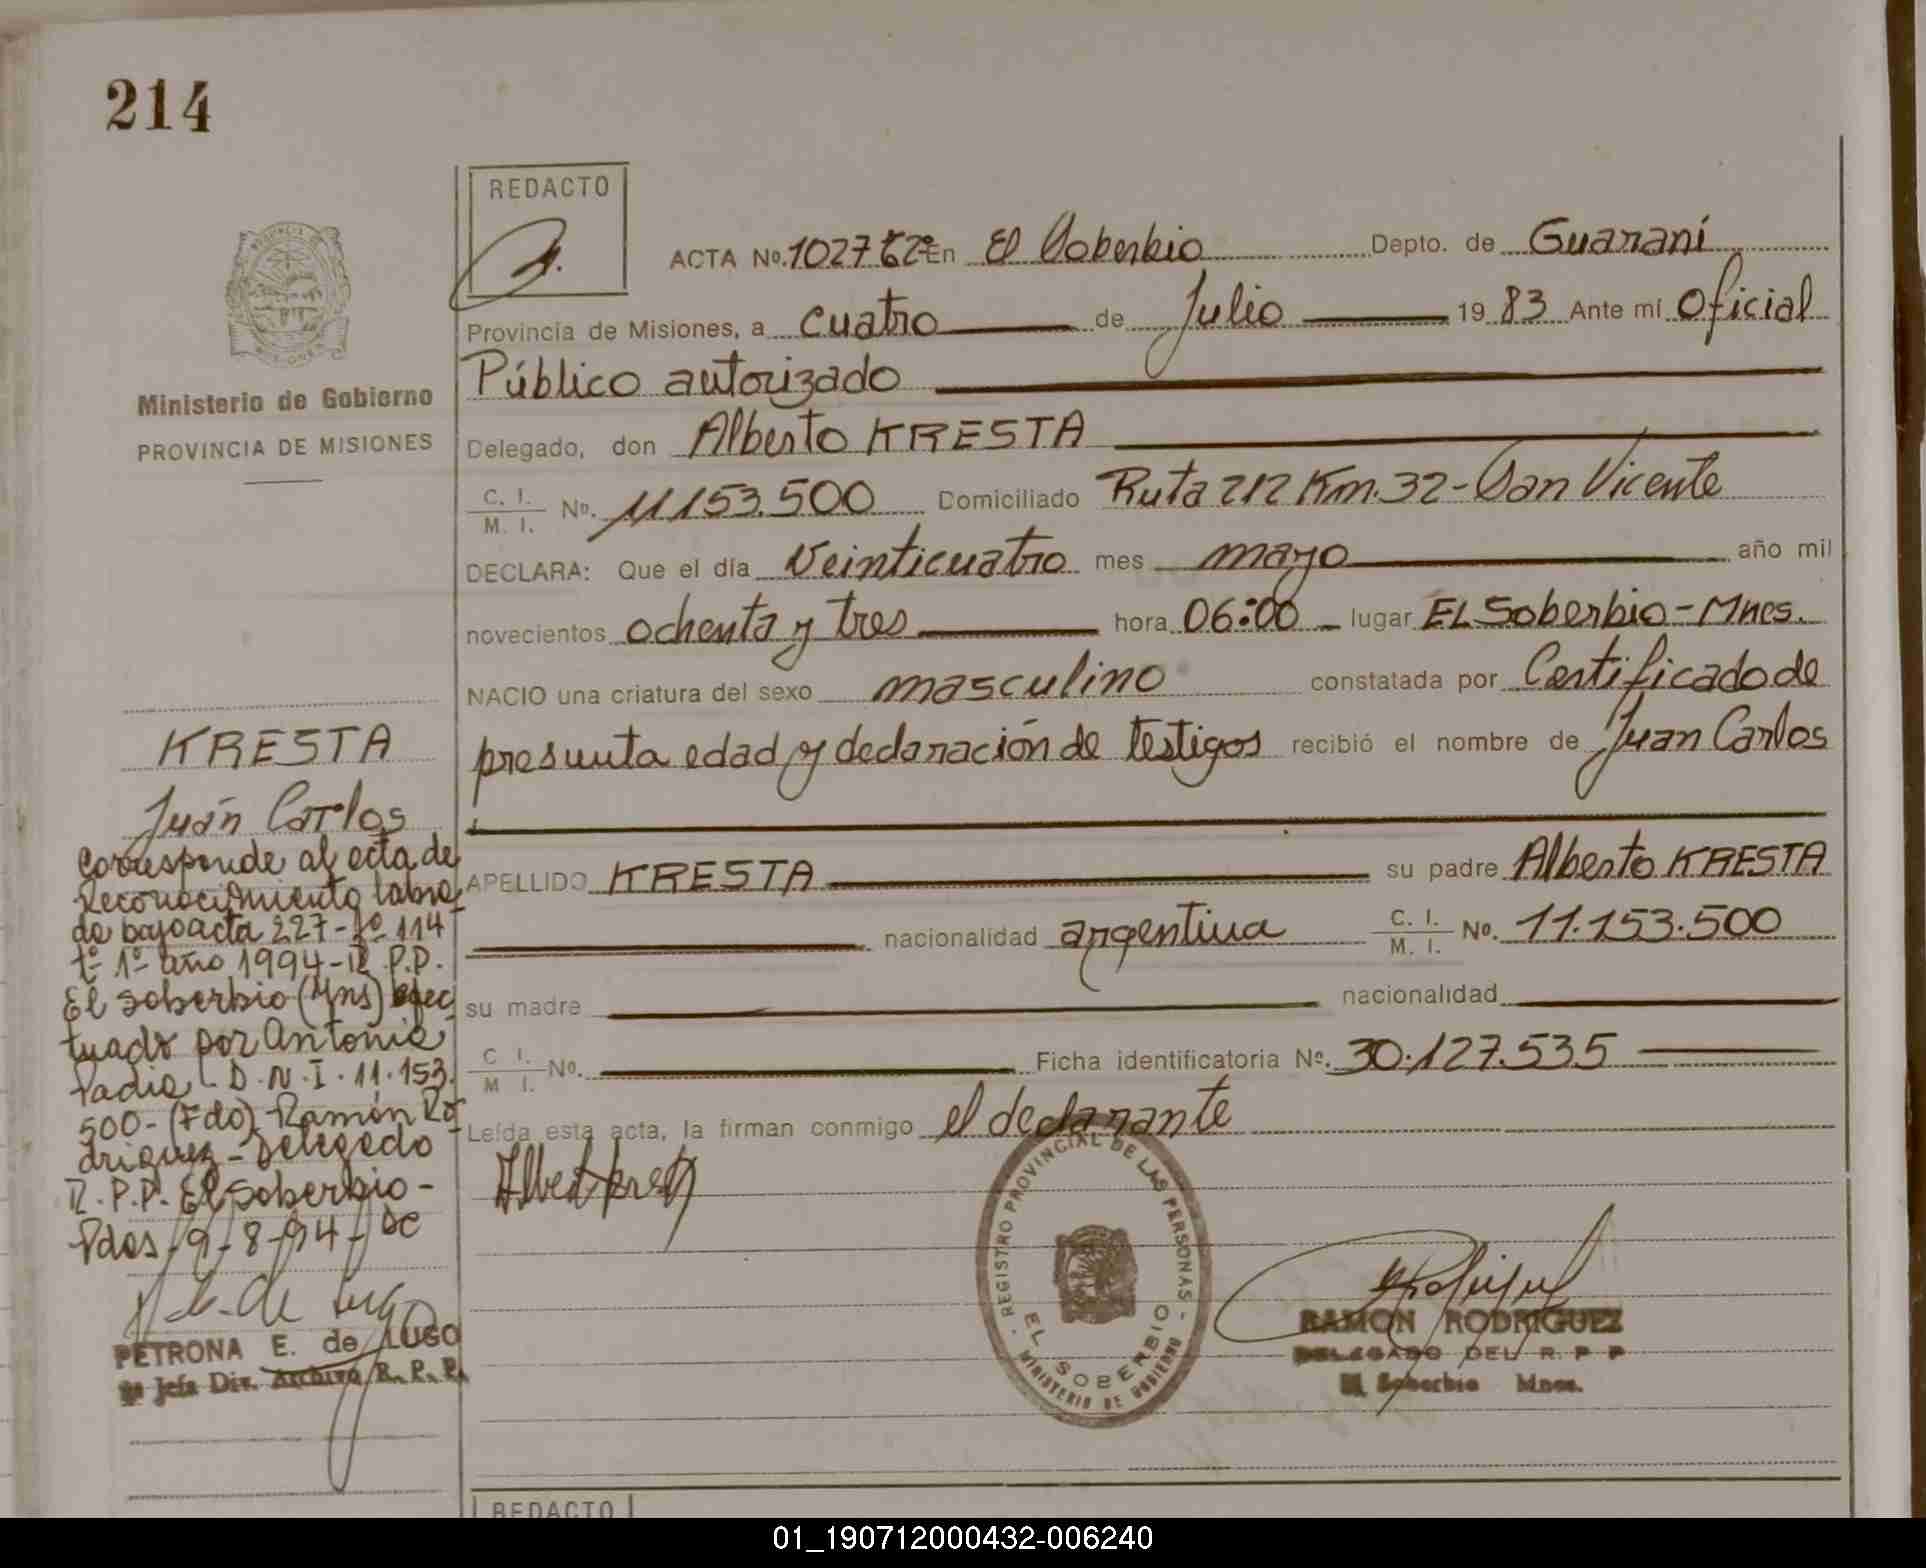 214
REDACTO
ACTA Nº. 102762º En El Soberbio Depto. de Guaraní
Provincia de Misiones, a cuatro de Julio 19 83 Ante mí Oficial
Público autorizado
Ministerio de Gobierno
PROVINCIA DE MISIONES
Delegado, don Alberto KRESTA
C. I.
M. I. Nº. 11153.500 Domiciliado Ruta 212 Km. 32 - San Vicente
DECLARA: Que el día Veinticuatro mes mayo año mil
novecientos ochenta y tres hora 06:00 lugar EL Soberbio - Mnes.
NACIO una criatura del sexo masculino constatada por Certificado de
presunta edad y declaración de testigos recibió el nombre de Juan Carlos
APELLIDO KRESTA su padre Alberto KRESTA
nacionalidad argentina C. I.
M. I. Nº. 11.153.500
su madre nacionalidad
C I.
M I. Nº. Ficha identificatoria Nº. 30.127.535
Leída esta acta, la firman conmigo el declarante
KRESTA
Juán Carlos
Corresponde al acta de
Reconocimiento labra
do bajo acta 227 - Fº 114
tº 1º año 1994 - R.P.P.
El Soberbio (Mns) efec
tuado por Antonia
Padia - D.N.I. 11.153.
500 - (Fdo) - Ramón Ro
driguez - Delegado
R.P.P. El Soberbio -
Pdas - 9 - 8 - 94 -
PETRONA E. de LUGO
Jefa Div. Archivo R. P. P.
REGISTRO PROVINCIAL DE LAS PERSONAS
EL SOBERBIO
MINISTERIO DE GOBIERNO
RAMON RODRIGUEZ
DELEGADO DEL R. P P
El Soberbio Mnes.
REDACTO
01_190712000432-006240